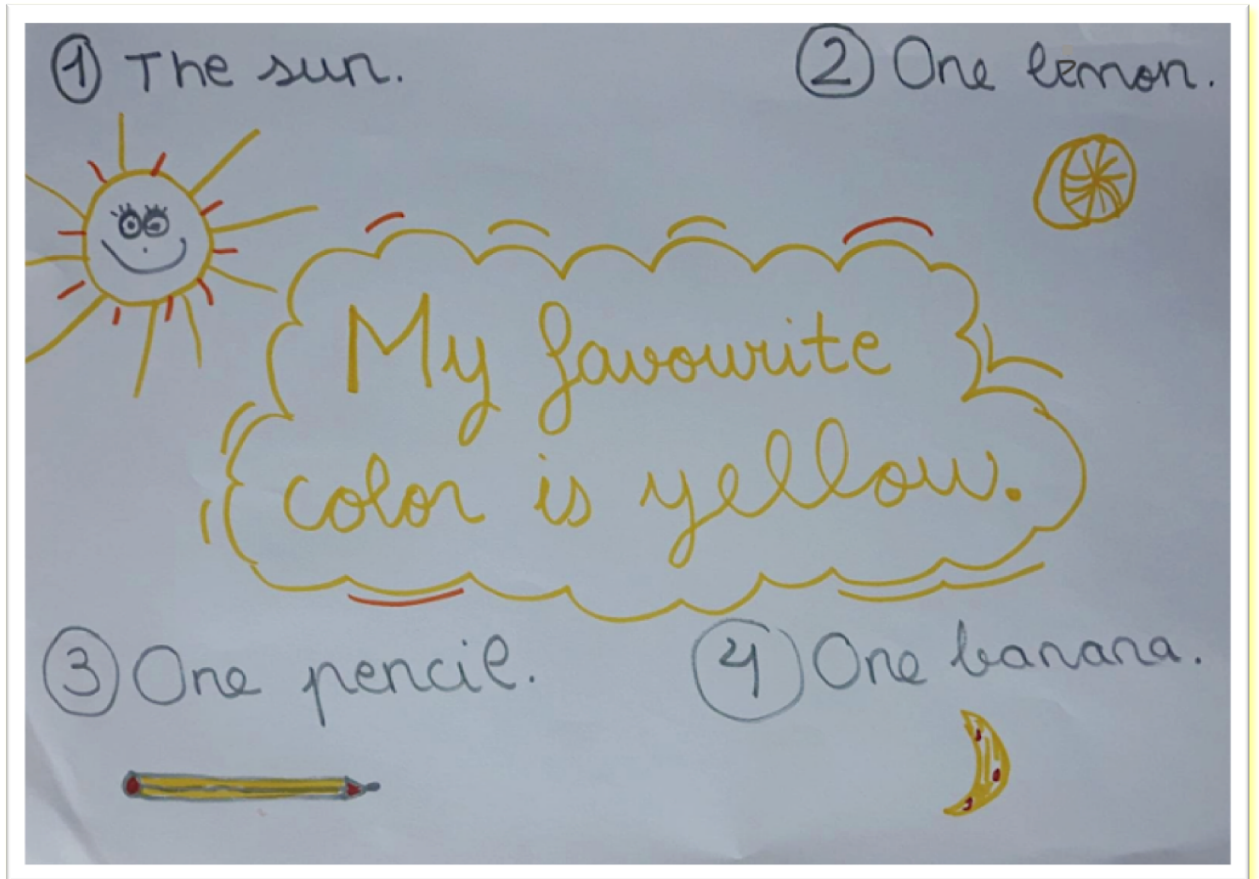 ① The sun.
② One lemon.
My favourite
color is yellow.
③ One pencil.
④ One banana.